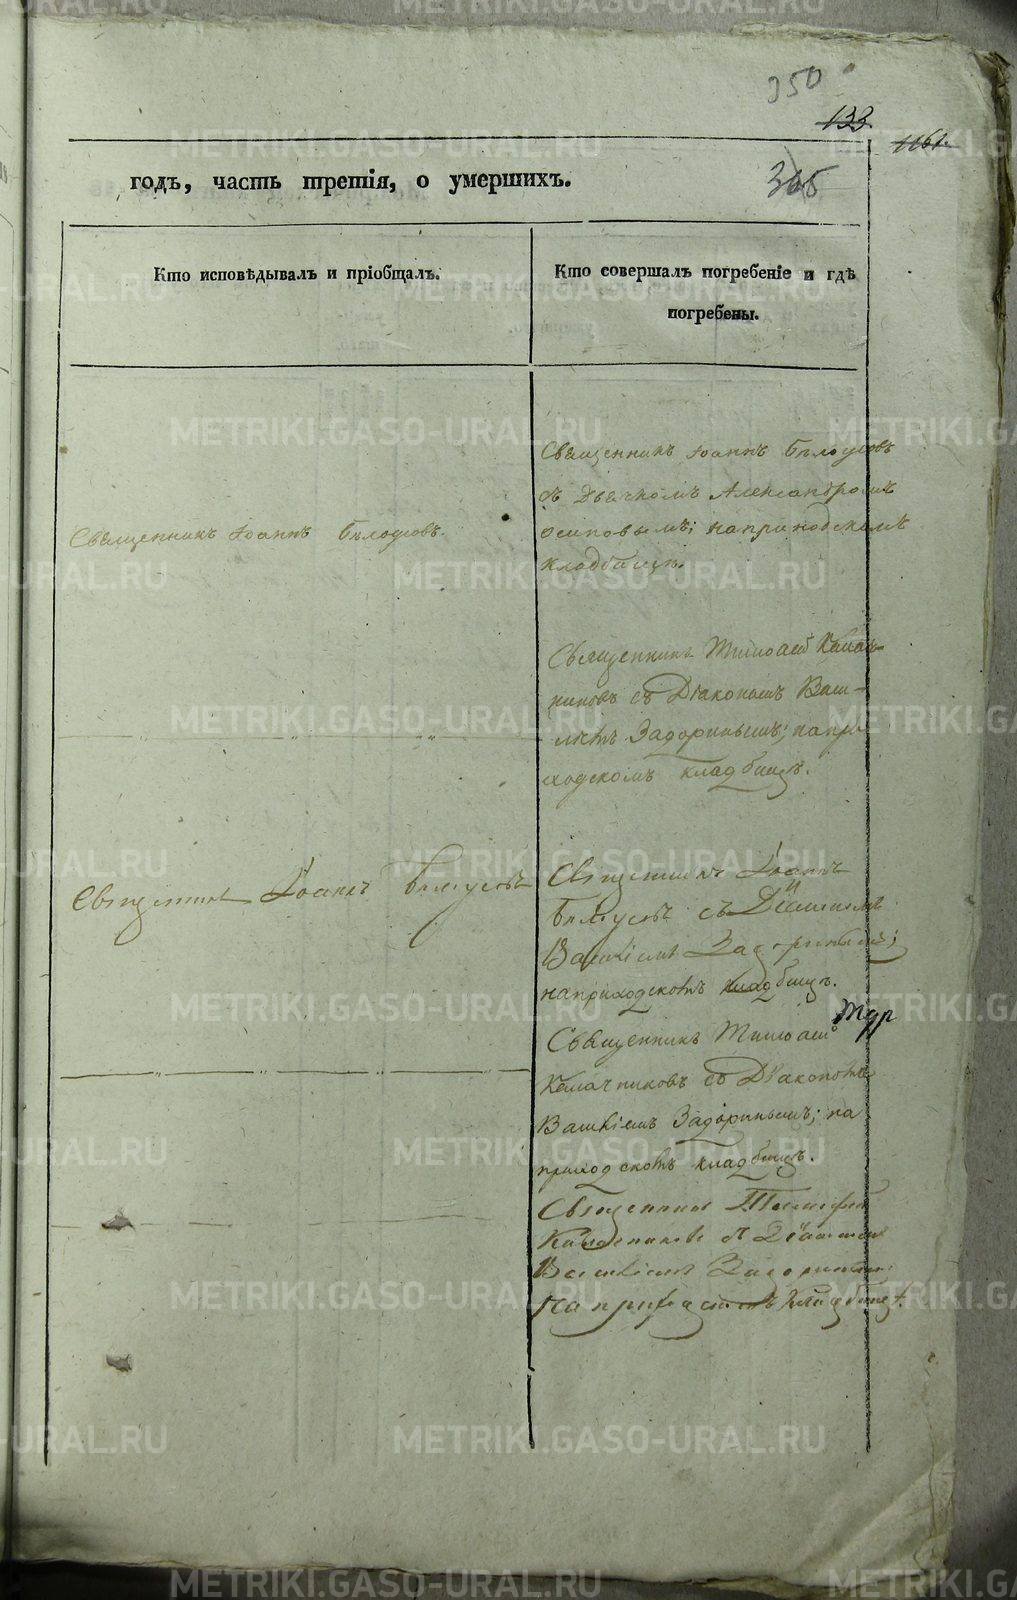 350
133
1161.
365
годъ, часть третія, о умершихъ.
Кто исповѣдывалъ и пріобщалъ.
Кто совершалъ погребеніе и гдѣ
погребены.
Священникъ Іоаннъ Бѣлоусовъ.
Священникъ Іоаннъ Бѣлоусовъ
съ Дьячкомъ Александромъ
Осиповымъ; на приходскомъ
кладбищѣ.
Священникъ Тимофей
съ Діакономъ Васи-
Задоринымъ; на при-
ходскомъ кладбищѣ.
Священникъ Іоаннъ Бѣлоусовъ
Священникъ Іоаннъ
Бѣлоусовъ съ Діакономъ
Василіемъ Задоринымъ;
на приходскомъ кладбищѣ.
Священникъ Тимофей
съ Діакономъ
Василіемъ Задоринымъ; на
приходскомъ кладбищѣ.
Священникъ Тимофей
съ Діакономъ
Василіемъ Задоринымъ
на приходскомъ кладбищѣ.
METRIKI.GASO-URAL.RU